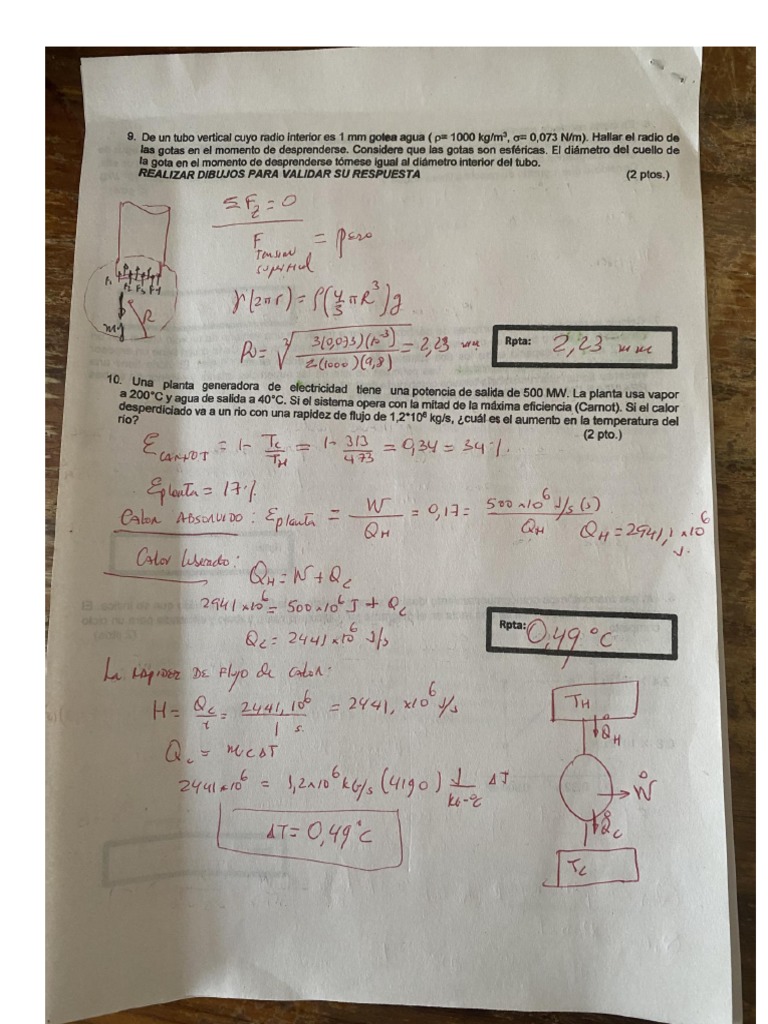 9. De un tubo vertical cuyo radio interior es 1 mm gotea agua ( ρ= 1000 kg/m³, σ= 0,073 N/m). Hallar el radio de
las gotas en el momento de desprenderse. Considere que las gotas son esféricas. El diámetro del cuello de
la gota en el momento de desprenderse tómese igual al diámetro interior del tubo.
REALIZAR DIBUJOS PARA VALIDAR SU RESPUESTA (2 ptos.)
ΣF_z = 0
F Tension superficial = peso
F₁ F₂ F₃ F₄
mg R
γ(2πr) = ρ(4/3 πR³)g
R = ∛(3(0,073)(10⁻³) / 2(1000)(9,8)) = 2,23 mm
Rpta: 2,23 mm
10. Una planta generadora de electricidad tiene una potencia de salida de 500 MW. La planta usa vapor
a 200°C y agua de salida a 40°C. Si el sistema opera con la mitad de la máxima eficiencia (Carnot). Si el calor
desperdiciado va a un rio con una rapidez de flujo de 1,2*10⁶ kg/s, ¿cuál es el aumento en la temperatura del
río? (2 pto.)
ℰ CARNOT = 1 - T_C/T_H = 1 - 313/473 = 0,34 = 34%.
ℰ planta = 17%
CALOR ABSORVIDO: ℰ planta = W/Q_H = 0,17 = 500×10⁶ J/s (s) / Q_H Q_H = 2941,1×10⁶ J.
Calor liberado: Q_H = W + Q_C
2941×10⁶ = 500×10⁶ J + Q_C
Q_C = 2441×10⁶ J/s
Rpta: 0,49°C
La rapidez DE Flujo de calor:
H = Q_C/t = 2441,10⁶ / 1 s. = 2441,×10⁶ J/s
Q_C = mCΔT
2441×10⁶ = 1,2×10⁶ kG/s (4190) J/kG-°C ΔT
ΔT = 0,49°C
T_H
Q_H
W
Q_C
T_C